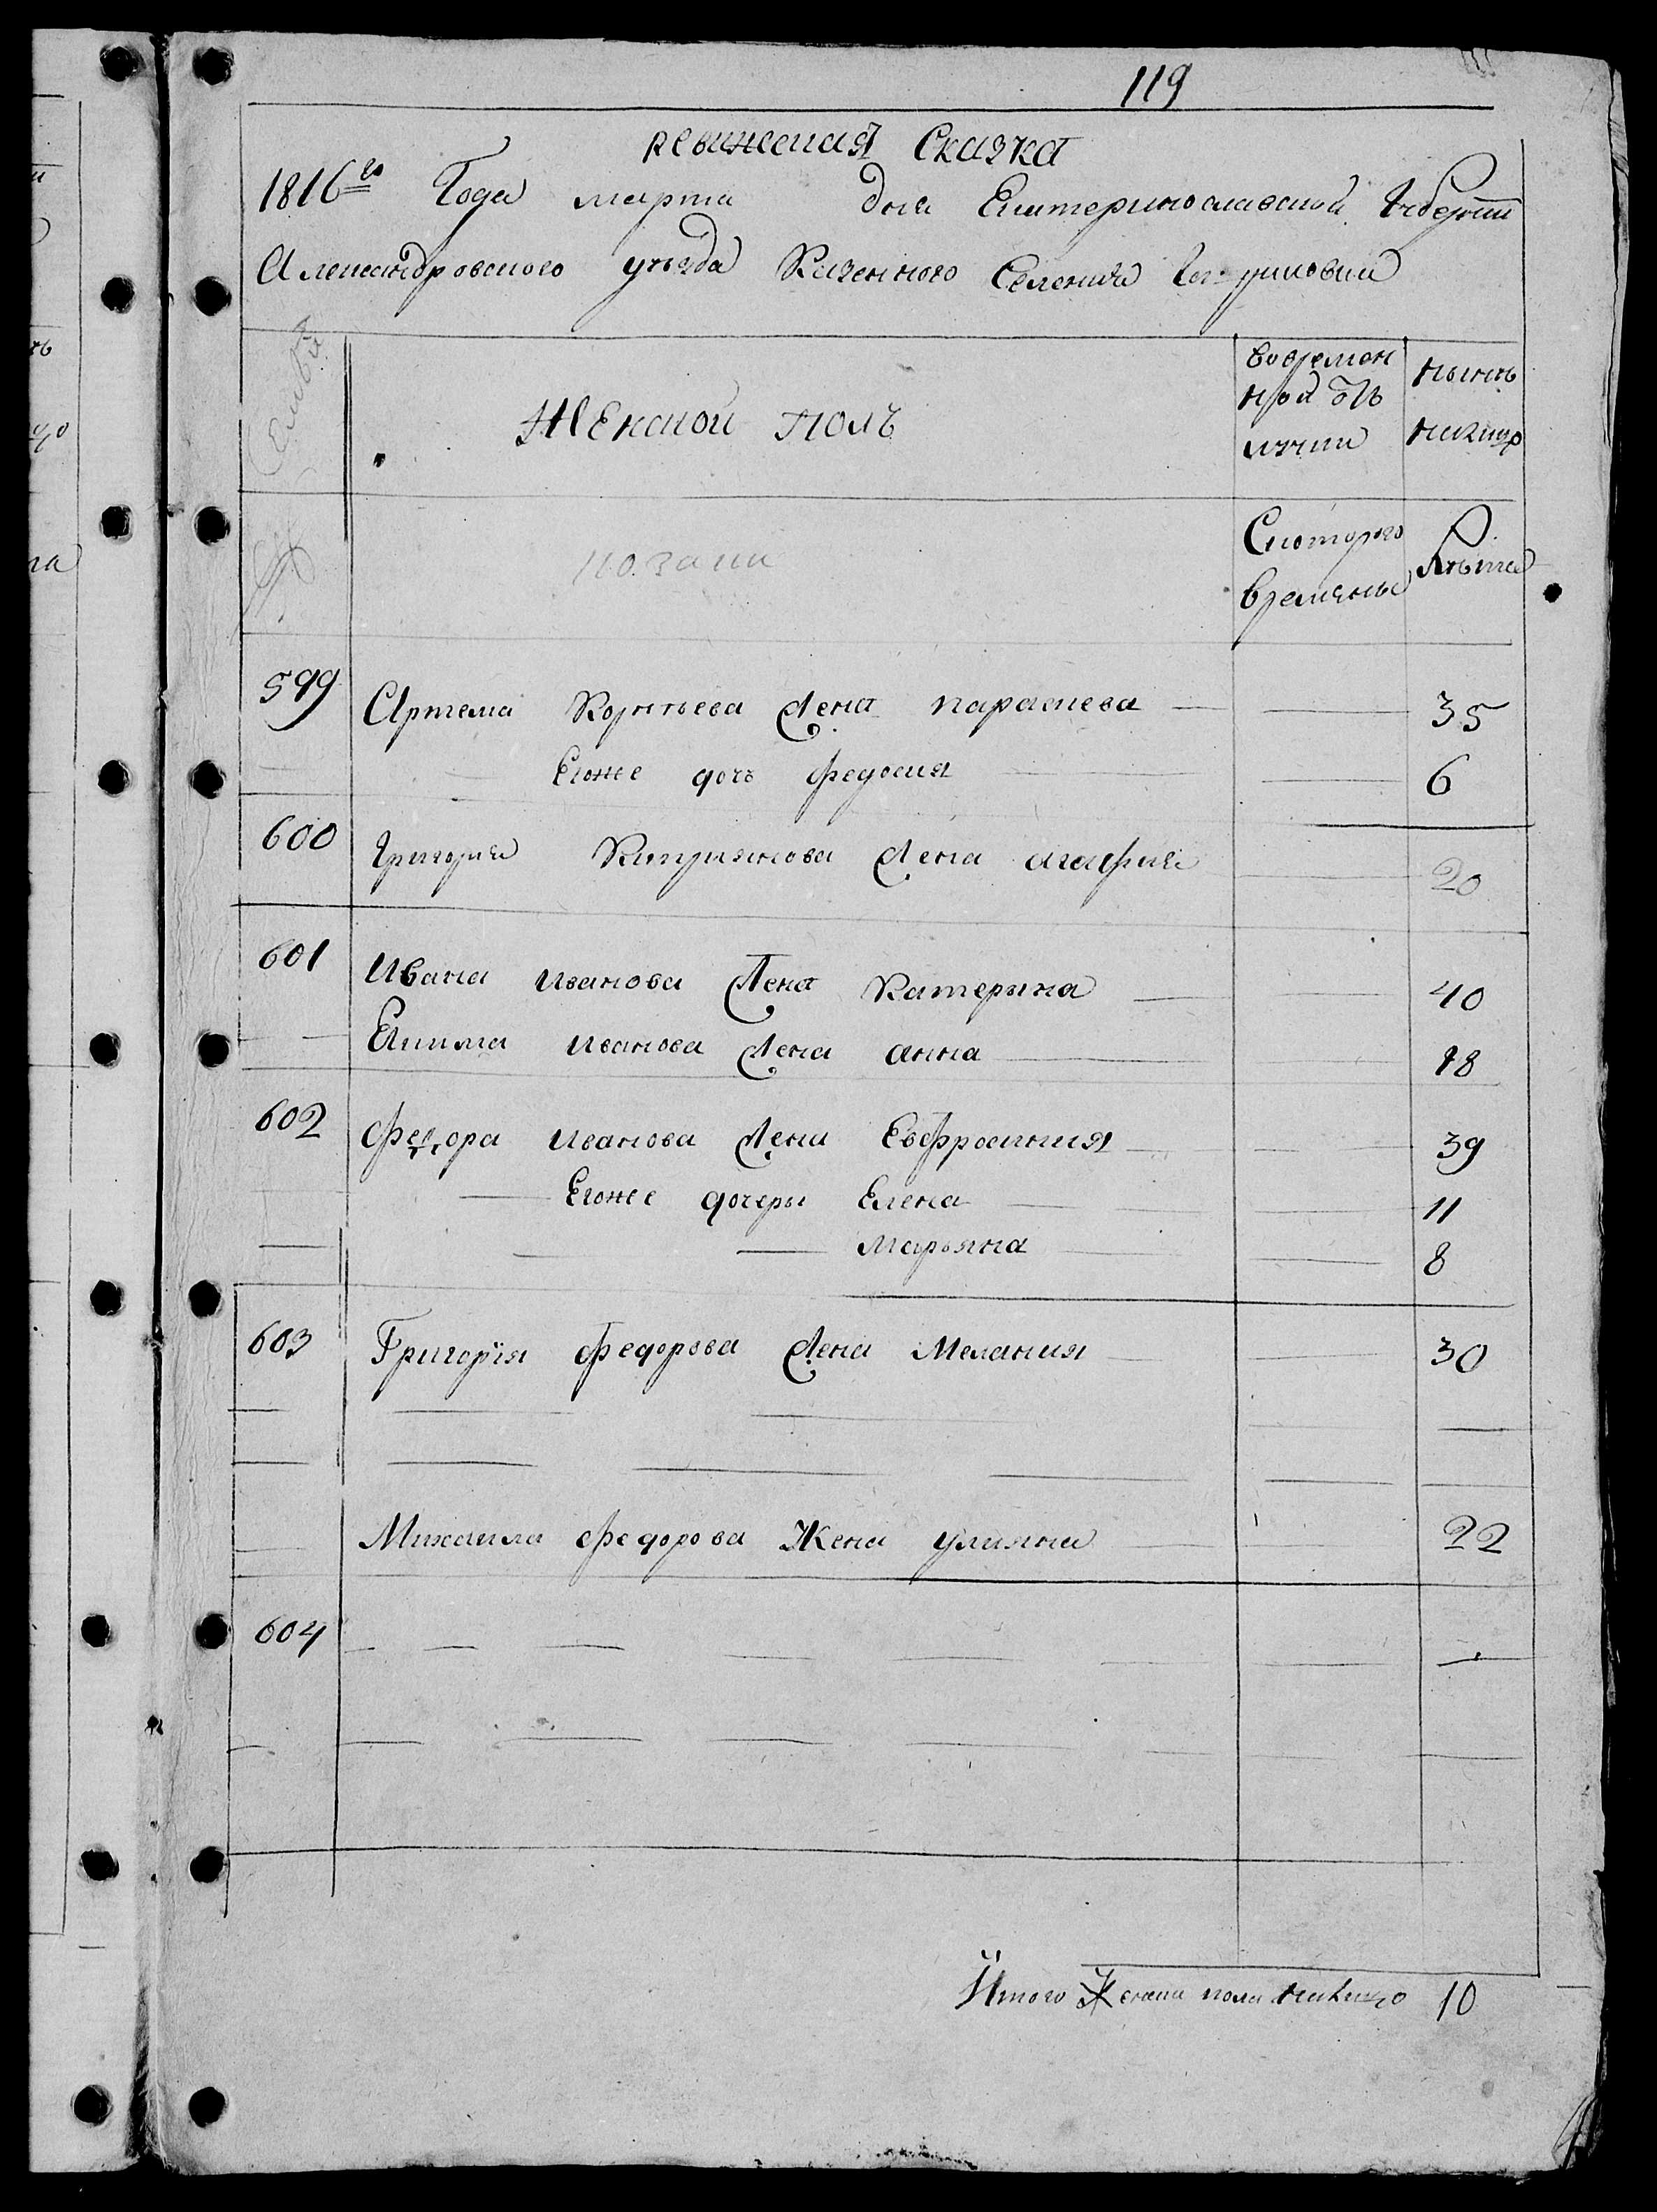 119
ревижская Сказка
1816го Года марта дня Екатеринославской Губернии
Александровского уезда Казенного Селения
Семьи
Женской полъ
Вовремен
ной отъ
лучки
ныне
налицо
Скоторого
времяны
Лета
599 Артема Корнѣева Жена параскева 35
Егоже дочь федосия 6
600 Григория Киприянова Жена агафия 20
601 Ивана Иванова Жена Катерина 40
Екима Иванова Жена анна 18
602 федора Иванова Жена Евфросиния 39
Егоже дочеры Елена 11
Марьяна 8
603 Григория федорова Жена Мелания 30
Михаила федорова Жена улияна 22
604
Итого Женска пола налицо 10